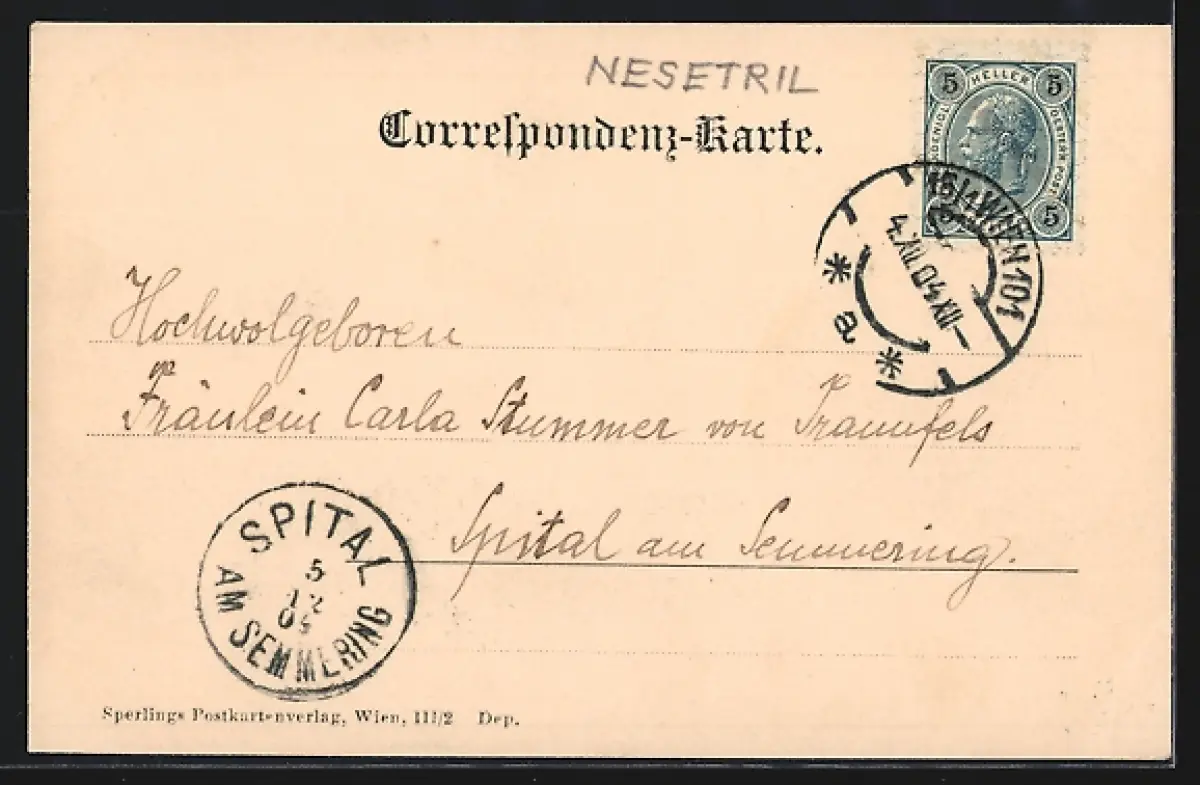 NESETRIL
Correspondenz-Karte.
5 HELLER 5
5 5
15/4 WIEN 101
4.XII.04 XII-
* a *
Hochwolgeboren
Fräulein Carla Stummer von Traunfels
Spital am Semmering.
SPITAL
5
12
04
AM SEMMERING
Sperlings Postkartenverlag, Wien, III/2 Dep.